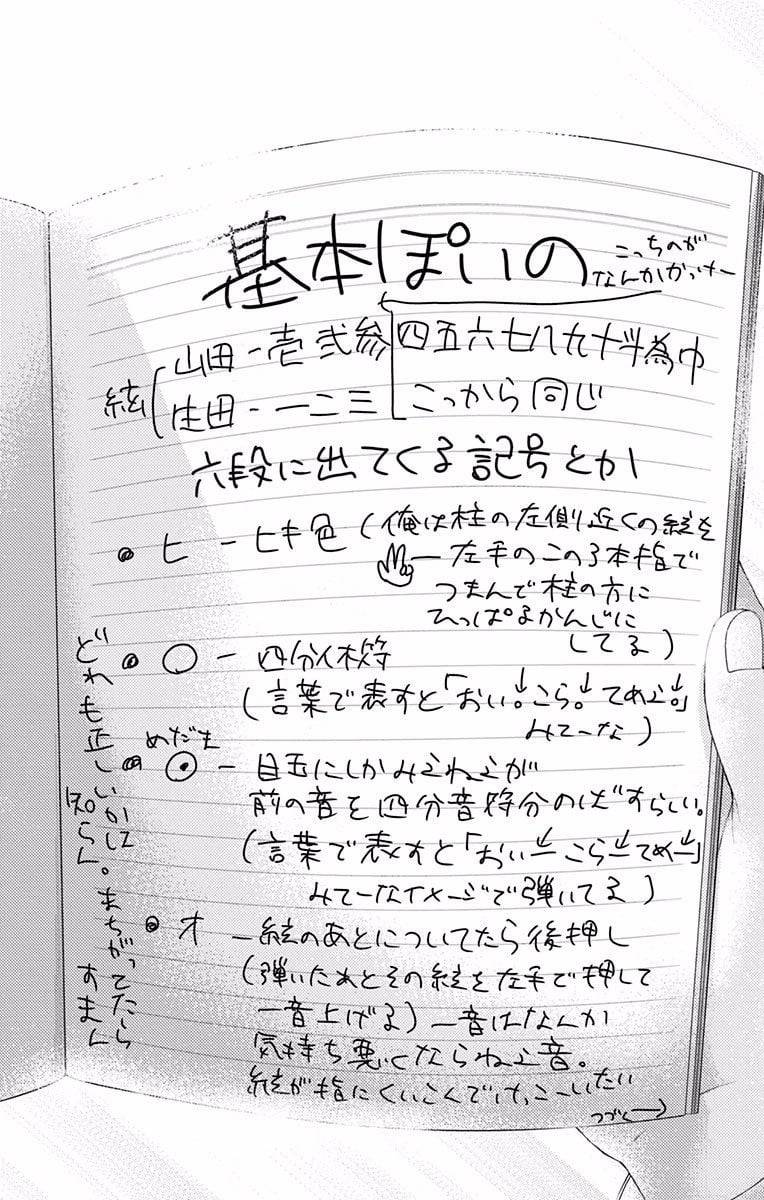 基本ぽいの
こっちのが
なんかかっけー
絃
山田-壱弐参四五六七八九十斗為巾
生田-一二三 こっから同じ
六段に出てくる記号とか
・ヒ-ヒキ色(俺は柱の左側近くの絃を
-左手のこの3本指で
つまんで柱の方に
ひっぱるかんじに
してる)
・○-四分休符
(言葉で表すと「おい↓。こら↓。てめえ↓。」
みてーな)
めだま
・⦿-目玉にしかみえねえが
前の音を四分音符分のばすらしい。
(言葉で表すと「おい↓ーこら↓ーてめ↓ー」
みてーなイメージで弾いてる)
・オ-絃のあとについてたら後押し
(弾いたあとその絃を左手で押して
一音上げる)一音はなんか
気持ち悪くならねえ音。
絃が指にくいこんでけっこーいたい
つづく→
どれも正しいかして
知らん。まちがってたら
すまん